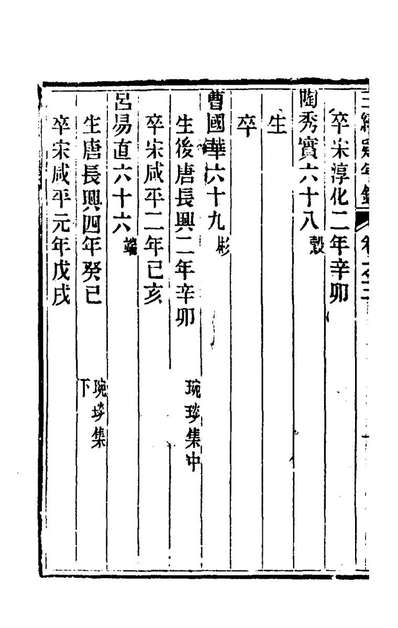 三續疑年錄 卷之三
卒宋淳化二年辛卯
陶秀實六十八 穀
生
卒
曹國華六十九 彬
生後唐長興二年辛卯 琬琰集中
卒宋咸平二年己亥
呂易直六十六 端
生唐長興四年癸巳 琬琰集下
卒宋咸平元年戊戌